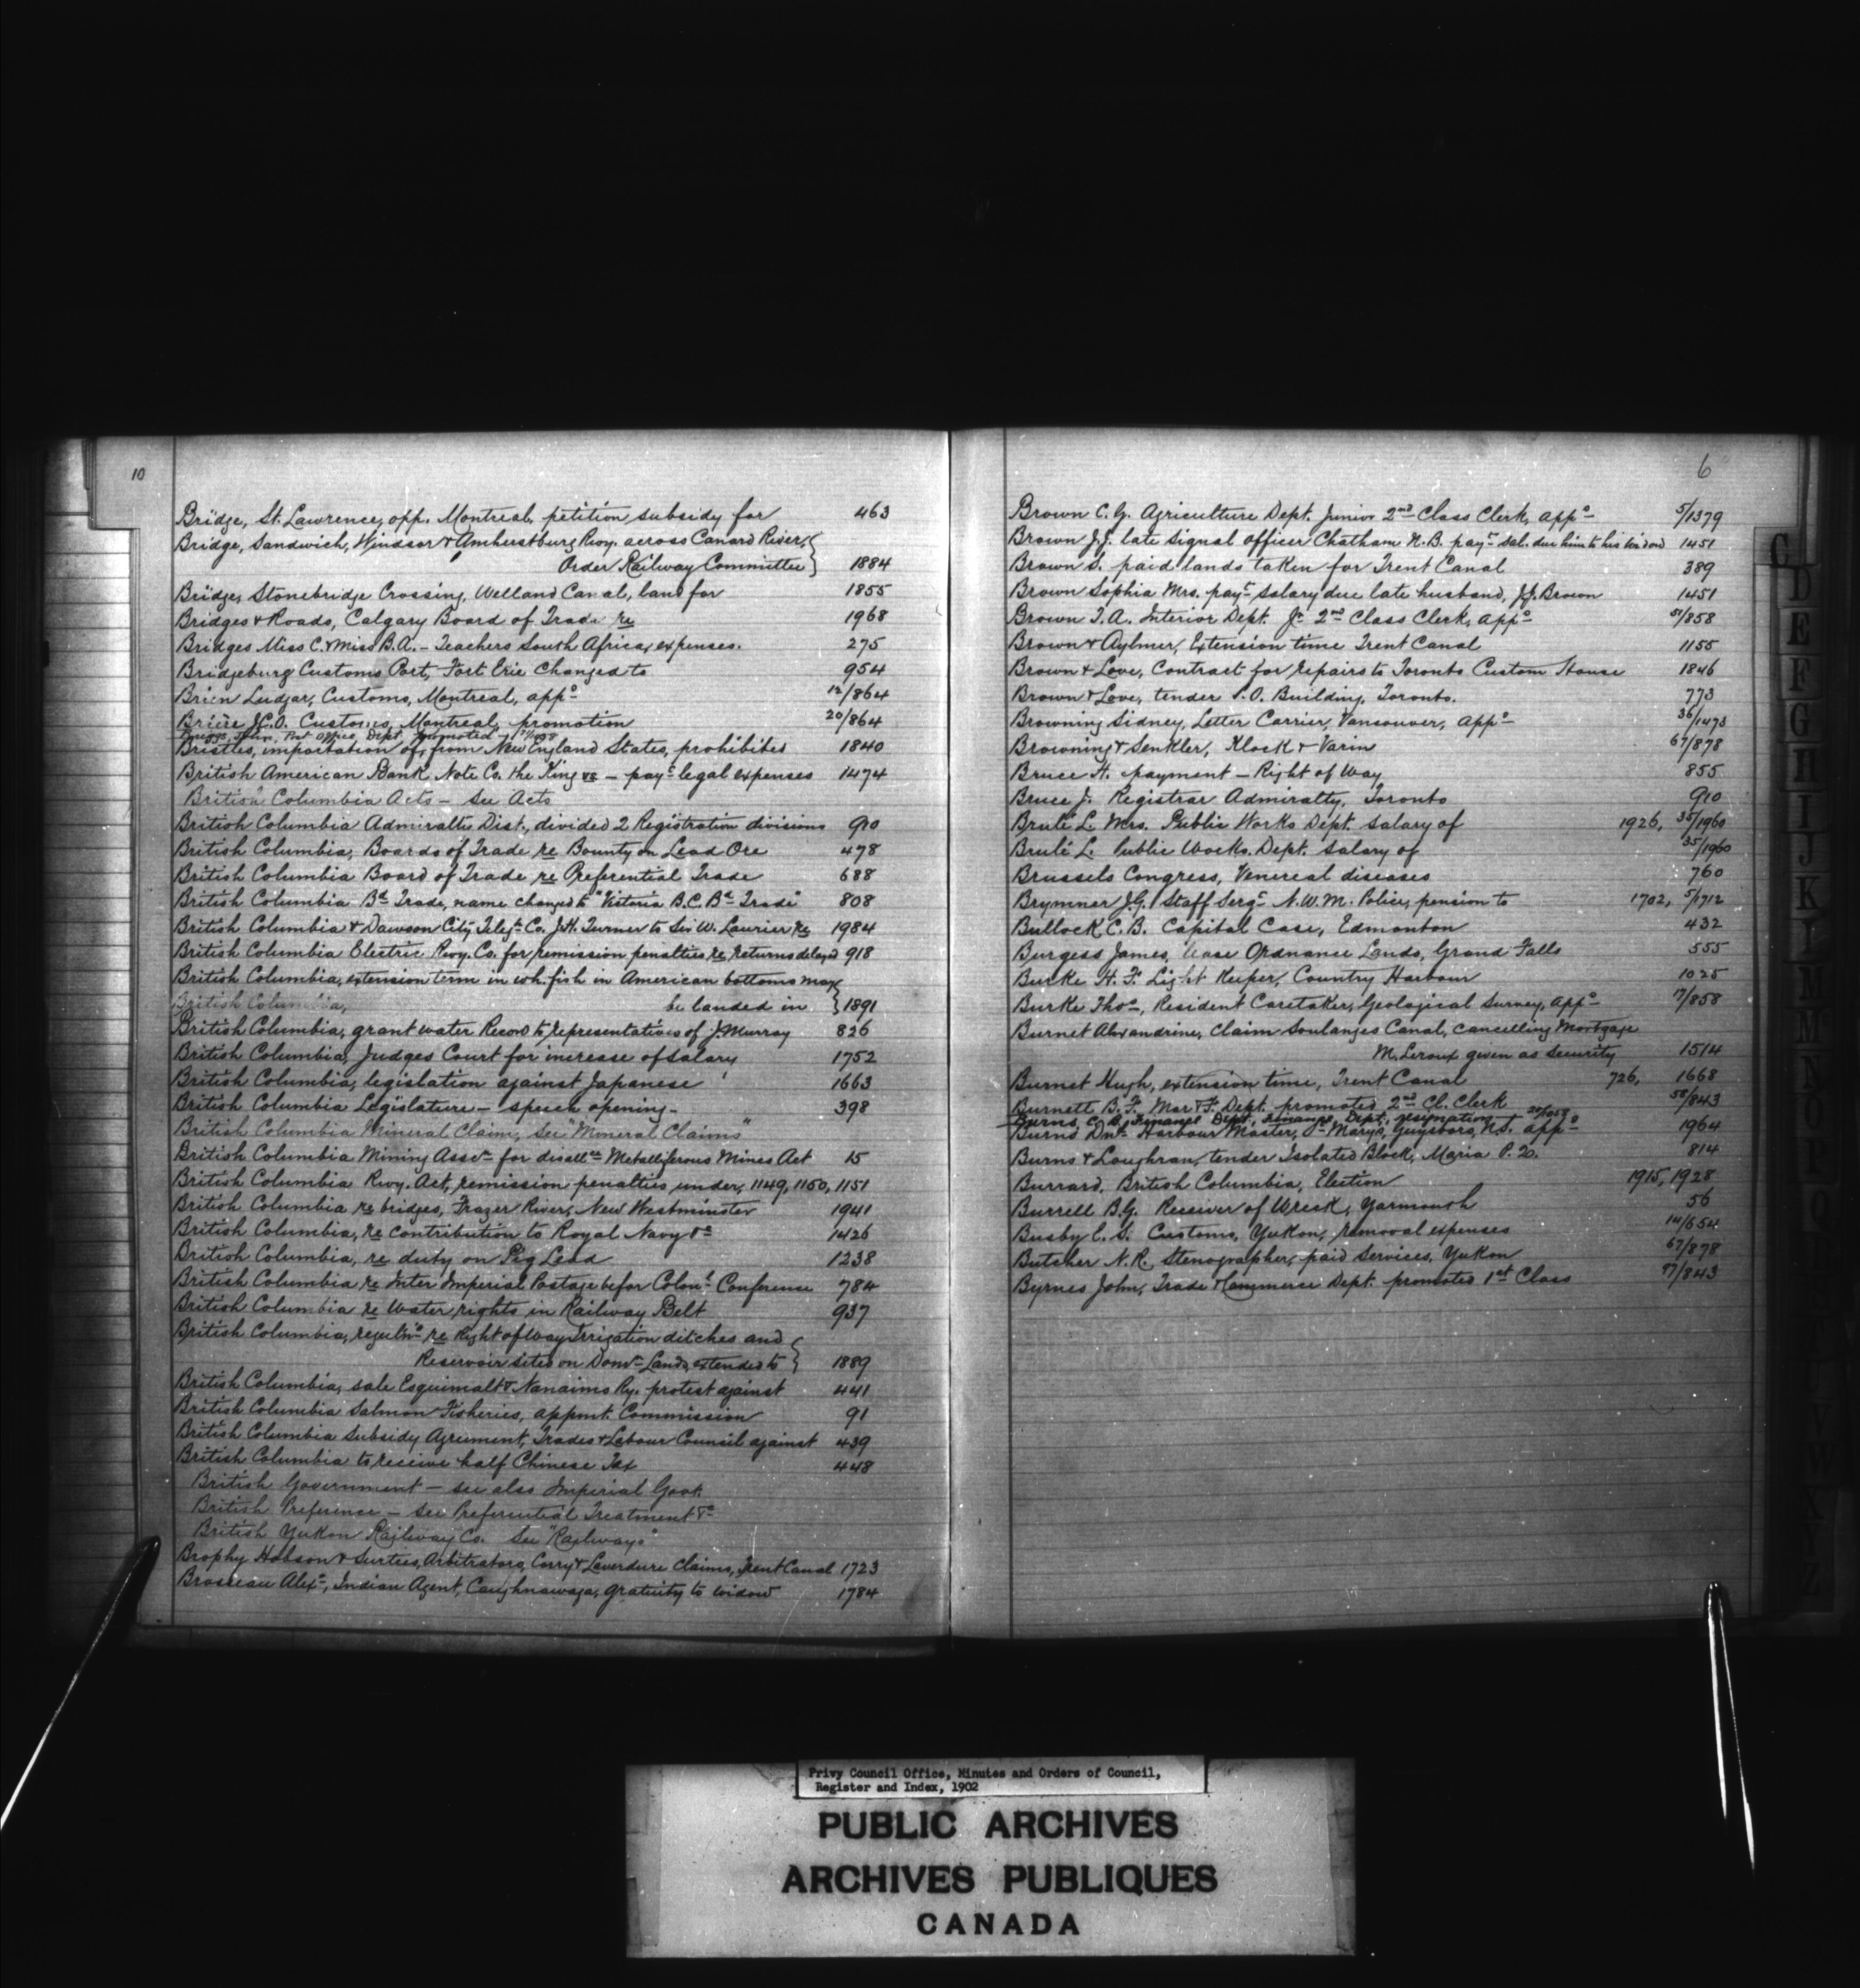 10
Bridge, St. Lawrence, opp. Montreal, petition subsidy for 463
Bridge, Sandwich, Windsor & Amherstburg Rwy. across Canard River,
Order Railway Committee } 1884
Bridge, Stonebridge Crossing, Welland Canal, land for 1855
Bridges & Roads, Calgary Board of Trade re 1968
Bridges Miss C. & Miss B.A. - Teachers South Africa, expenses. 275
Bridgeburg Customs Port, Fort Erie Changed to 954
Brien Ludgar, Customs, Montreal, app^o 12/864
Brière J.C.O. Customs, Montreal, promotion 20/864
Briggs, John, Post Office, Dept. promoted
Bristles, importation of, from New England States, prohibited 1840
British American Bank Note Co. the King vs - pay^t legal expenses 1474
British Columbia Acts - See Acts
British Columbia Admiralty Dist., divided 2 Registration divisions 910
British Columbia, Boards of Trade re Bounty on Lead Ore 478
British Columbia Board of Trade re Preferential Trade 688
British Columbia B^d Trade, name changed to "Victoria B.C. B^d Trade" 808
British Columbia & Dawson City Teleg^h Co. J.H. Turner to Sir W. Laurier re 1984
British Columbia Electric Rwy. Co. for remission penalties re returns delayed 918
British Columbia, extension term in wh. fish in American bottoms may
British Columbia, be landed in } 1891
British Columbia, grant water Record to representatives of J. Murray 826
British Columbia, Judges Court for increase of salary 1752
British Columbia, legislation against Japanese 1663
British Columbia Legislature - speech opening - 398
British Columbia Mineral Claims, See "Mineral Claims"
British Columbia Mining Assn for disall^ce Metalliferous Mines Act 15
British Columbia Rwy. Act, remission penalties under, 1149, 1150, 1151
British Columbia re bridges, Frazer River, New Westminster 1941
British Columbia, re contribution to Royal Navy &c 1426
British Columbia, re duty on Pig Lead 1238
British Columbia re Inter Imperial Postage befor Colon^l Conference 784
British Columbia re Water rights in Railway Belt 937
British Columbia, regul^ns re Right of Way Irrigation ditches and
Reservoir sites on Dom^n Lands, extended to } 1889
British Columbia, sale Esquimalt & Nanaimo Ry. protest against 441
British Columbia Salmon Fisheries, appmt. Commission 91
British Columbia Subsidy Agreement, Trades & Labour Council against 439
British Columbia to receive half Chinese Tax 448
British Government - see also Imperial Govt.
British Preference - see Preferential Treatment &c
British Yukon Railway Co. See "Railways"
Brophy Hobson & Surtees, Arbitrators, Corry & Laverdure claims, Trent Canal 1723
Brosseau Alex^r, Indian Agent, Caughnawaga, gratuity to widow 1784
6
Brown C.G. Agriculture Dept. Junior 2nd Class Clerk, app^o 5/1379
Brown J.J. late Signal Officer Chatham N.B. pay^t sal. due him to his widow 1451
Brown S. paid lands taken for Trent Canal 389
Brown Sophia Mrs. pay^t salary due late husband, J.J. Brown 1451
Brown T.A. Interior Dept. Jr 2nd Class Clerk, app^o 51/858
Brown & Aylmer, Extension time Trent Canal 1155
Brown & Love, Contract for repairs to Toronto Custom House 1846
Brown & Love, tender P.O. Building, Toronto. 773
Browning Sidney, Letter Carrier, Vancouver, app^o 36/1473
Browning & Senkler, Klock & Varin 67/878
Bruce H. payment - Right of Way 855
Bruce J. Registrar Admiralty, Toronto 910
Brulé L. Mrs. Public Works Dept. salary of 1926, 35/1960
Brulé L. Public Works. Dept. salary of 35/1960
Brussels Congress, Venereal diseases 760
Brymner J.G. Staff Serg^t N.W.M. Police, pension to 1702, 5/1712
Bullock C.B. Capital Case, Edmonton 432
Burgess James, lease Ordnance Lands, Grand Falls 555
Burke H.F. Light Keeper, Country Harbour 1025
Burke Tho^s, Resident Caretaker, Geological Survey, app^o 17/858
Burnet Alexandrine, Claim Soulanges Canal, cancelling Mortgage
M. Leroux given as security 1514
Burnet Hugh, extension time, Trent Canal 726, 1668
Burnett B.F. Mar & F. Dept. promoted 2nd Cl. Clerk 58/843
Burns, C.B. Finance Dept., resignation
Burns Harbour Master, St. Marys, Guysboro, N.S. app^o 1964
Burns & Loughran, tender Isolated Block, Maria P.Q. 814
Burrard, British Columbia, Election 1915, 1928
Burrell B.G. Receiver of Wreck, Yarmouth 56
Busby E.S. Customs, Yukon, removal expenses 14/654
Butcher N.R. Stenographer, paid services, Yukon 67/878
Byrnes John, Trade & Commerce Dept. promoted 1st Class 77/843
C
D
E
F
G
H
I
J
K
L
M
N
O
Privy Council Office, Minutes and Orders of Council,
Register and Index, 1902
PUBLIC ARCHIVES
ARCHIVES PUBLIQUES
CANADA